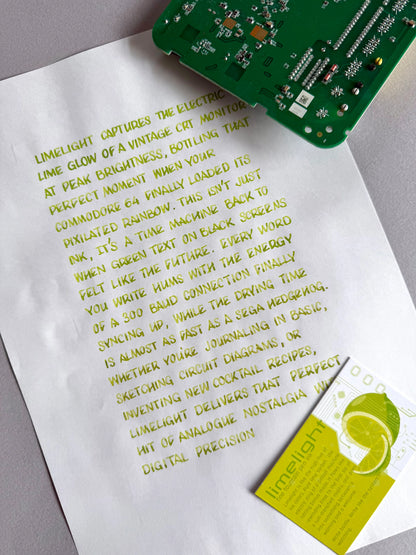 LIMELIGHT CAPTURES THE ELECTRIC
LIME GLOW OF A VINTAGE CRT MONITOR
AT PEAK BRIGHTNESS, BOTTLING THAT
PERFECT MOMENT WHEN YOUR
COMMODORE 64 FINALLY LOADED ITS
PIXILATED RAINBOW. THIS ISN'T JUST
INK, IT'S A TIME MACHINE BACK TO
WHEN GREEN TEXT ON BLACK SCREENS
FELT LIKE THE FUTURE. EVERY WORD
YOU WRITE HUMS WITH THE ENERGY
OF A 300 BAUD CONNECTION FINALLY
SYNCING UP, WHILE THE DRYING TIME
IS ALMOST AS FAST AS A SEGA HEDGEHOG.
WHETHER YOU'RE JOURNALING IN BASIC,
SKETCHING CIRCUIT DIAGRAMS, OR
INVENTING NEW COCKTAIL RECIPES,
LIMELIGHT DELIVERS THAT PERFECT
HIT OF ANALOGUE NOSTALGIA
DIGITAL PRECISION
limelight